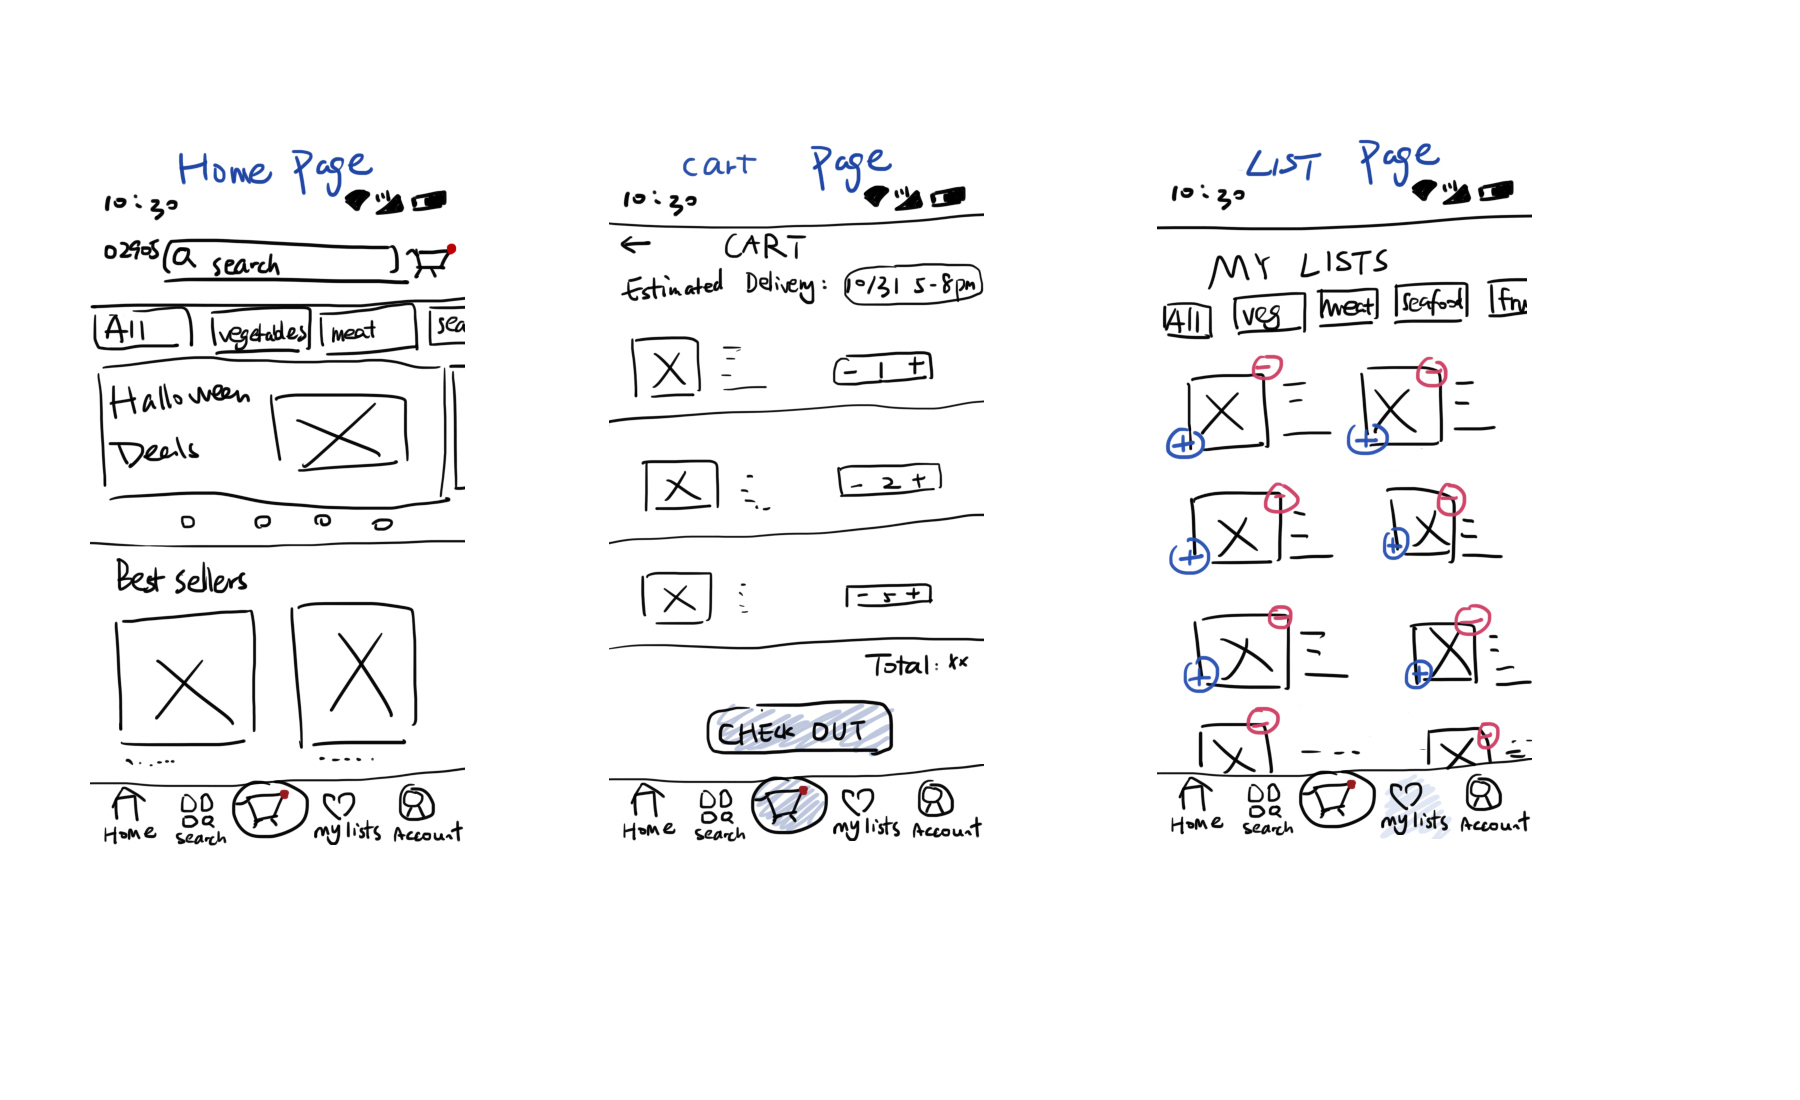 Home Page
10:30
02905 search
All vegetables meat sea
Halloween
Deals
Best sellers
Home search my lists Account
cart Page
10:30
← CART
Estimated Delivery: 10/31 5-8pm
- 1 +
- 2 +
- 5 +
Total: xx
CHECK OUT
Home search my lists Account
LIST Page
10:30
MY LISTS
All veg meat seafood fru
Home search my lists Account